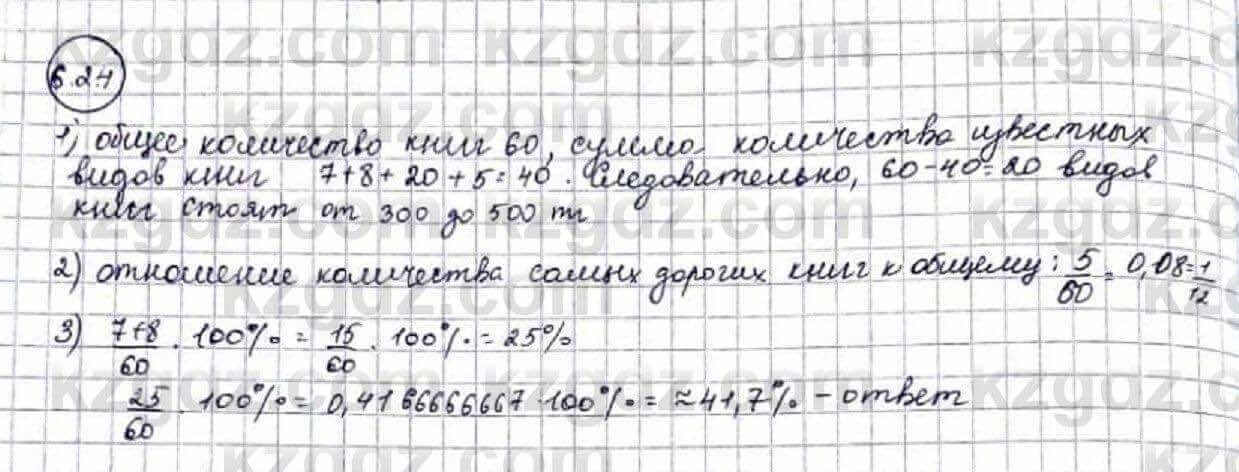 6.24
1) общее количество книг 60, сумма количества известных
видов книг 7+8+20+5=40. Следовательно, 60-40=20 видов
книг стоят от 300 до 500 тг
2) отношение количества самых дорогих книг к общему: 5/60 = 0,08 = 1/12
3) 7+8/60 · 100% = 15/60 · 100% = 25%
25/60 · 100% = 0,4166666667·100% = ≈41,7% - ответ
kzgdz.com